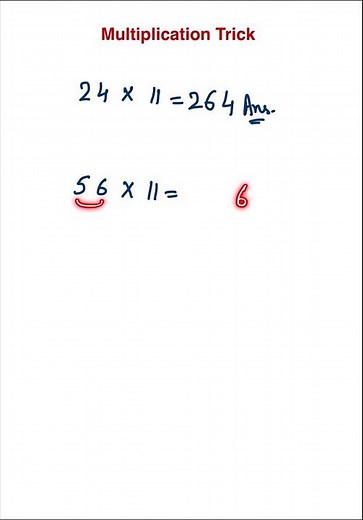 Multiplication Trick
24 × 11 = 264 Ans.
56 × 11 = 6